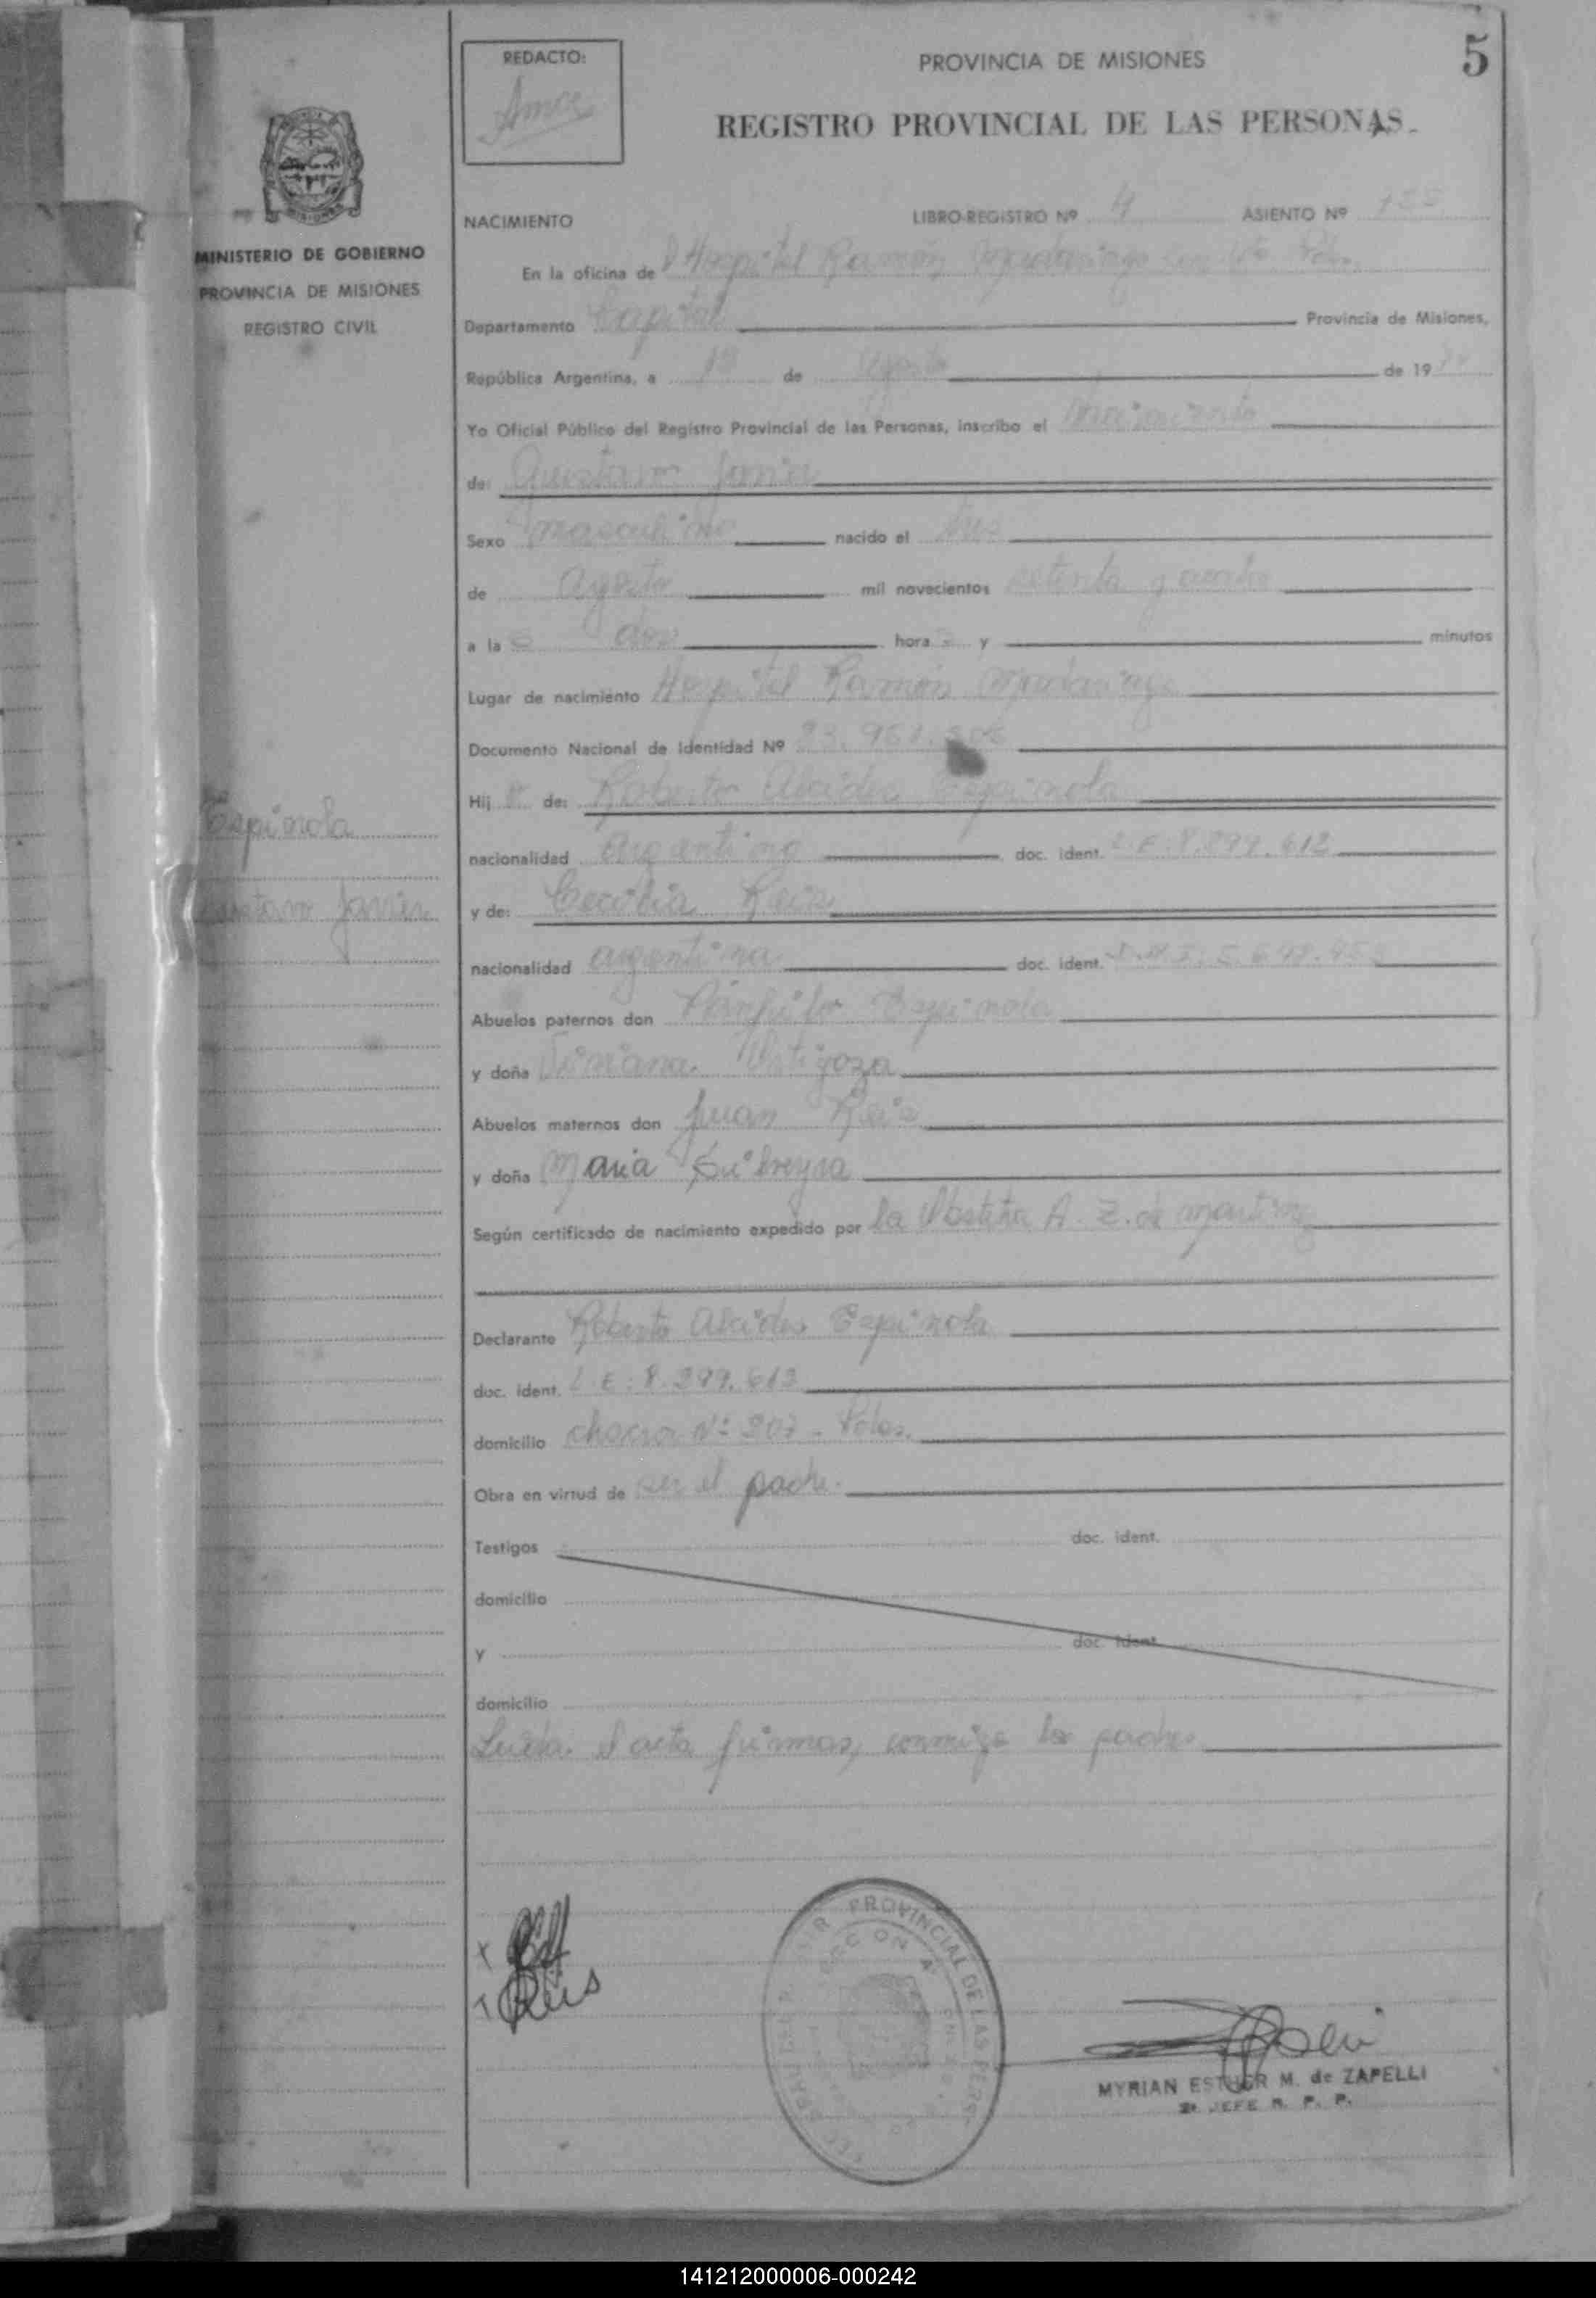 REDACTO:
PROVINCIA DE MISIONES
5
REGISTRO PROVINCIAL DE LAS PERSONAS
MINISTERIO DE GOBIERNO
PROVINCIA DE MISIONES
REGISTRO CIVIL
NACIMIENTO LIBRO-REGISTRO Nº 4 ASIENTO Nº
En la oficina de l Hospital Ramón Madariaga
Departamento Capital Provincia de Misiones,
República Argentina, a de Agosto de 19
Yo Oficial Público del Registro Provincial de las Personas, inscribo el Nacimiento
de: Gustavo Javier
Sexo masculino nacido el tres
de Agosto mil novecientos setenta y cuatro
a las dos horas y minutos
Lugar de nacimiento Hospital Ramón Madariaga
Documento Nacional de Identidad Nº
Hijo de: Roberto Alcides Espinola
nacionalidad argentino doc. ident. L.E: 8.299.612
y de: Cecilia Reis
nacionalidad argentina doc. ident.
Abuelos paternos don Pánfilo Espinola
y doña Viviana
Abuelos maternos don Juan Reis
y doña Maria
Según certificado de nacimiento expedido por la Obstetra A. Z. de Martinez
Declarante Roberto Alcides Espinola
doc. ident. L.E: 8.299.612
domicilio chacra Nº 207 - Pdas.
Obra en virtud de ser el padre.
Testigos doc. ident.
domicilio
y doc. ident.
domicilio
Leida el acta firman conmigo los padres
Espinola
Gustavo Javier
Reis
PROVINCIAL DE LAS PERS
MYRIAN ESTHER M. de ZAPELLI
JEFE R. P. P.
141212000006-000242